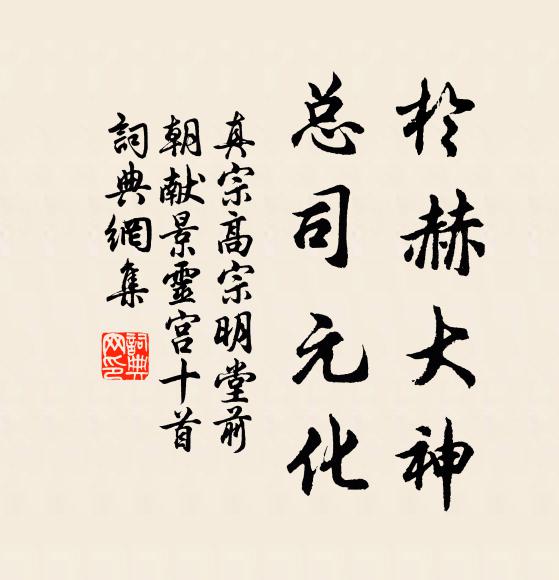 於赫大神
总司元化
真宗高宗明堂前
朝献景靈宫十首
詞典網集
詞典网印